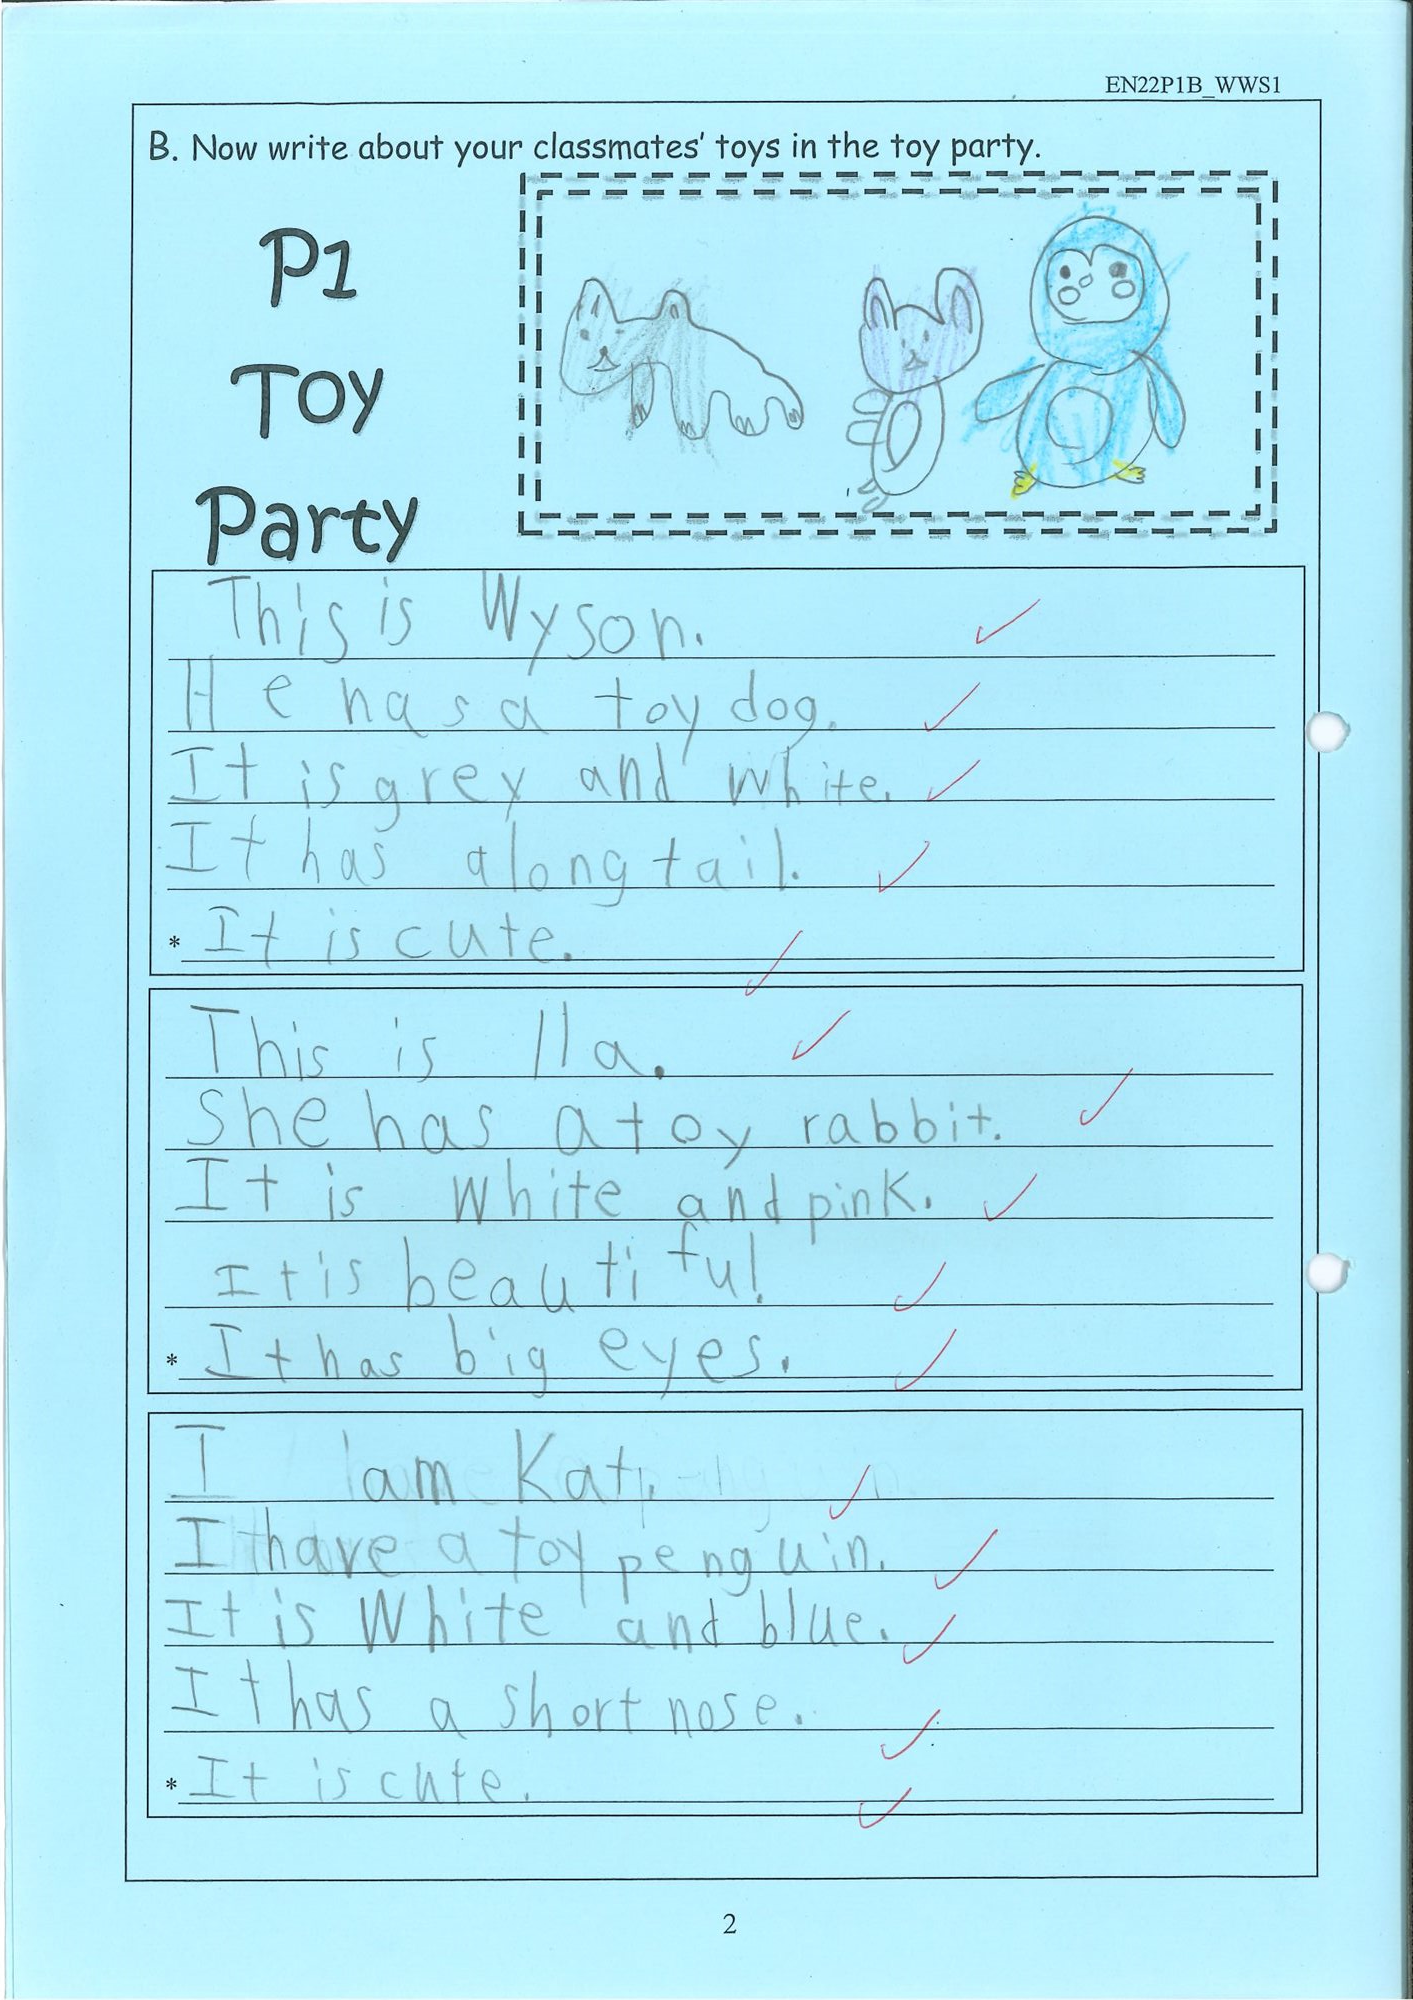 EN22P1B_WWS1
B. Now write about your classmates' toys in the toy party.
P1
Toy
Party
This is Wyson.
He has a toy dog.
It is grey and white.
It has a long tail.
* It is cute.
This is Ila.
She has a toy rabbit.
It is white and pink.
It is beautiful.
* It has big eyes.
I am Kat.
I have a toy penguin.
It is white and blue.
It has a short nose.
* It is cute.
2